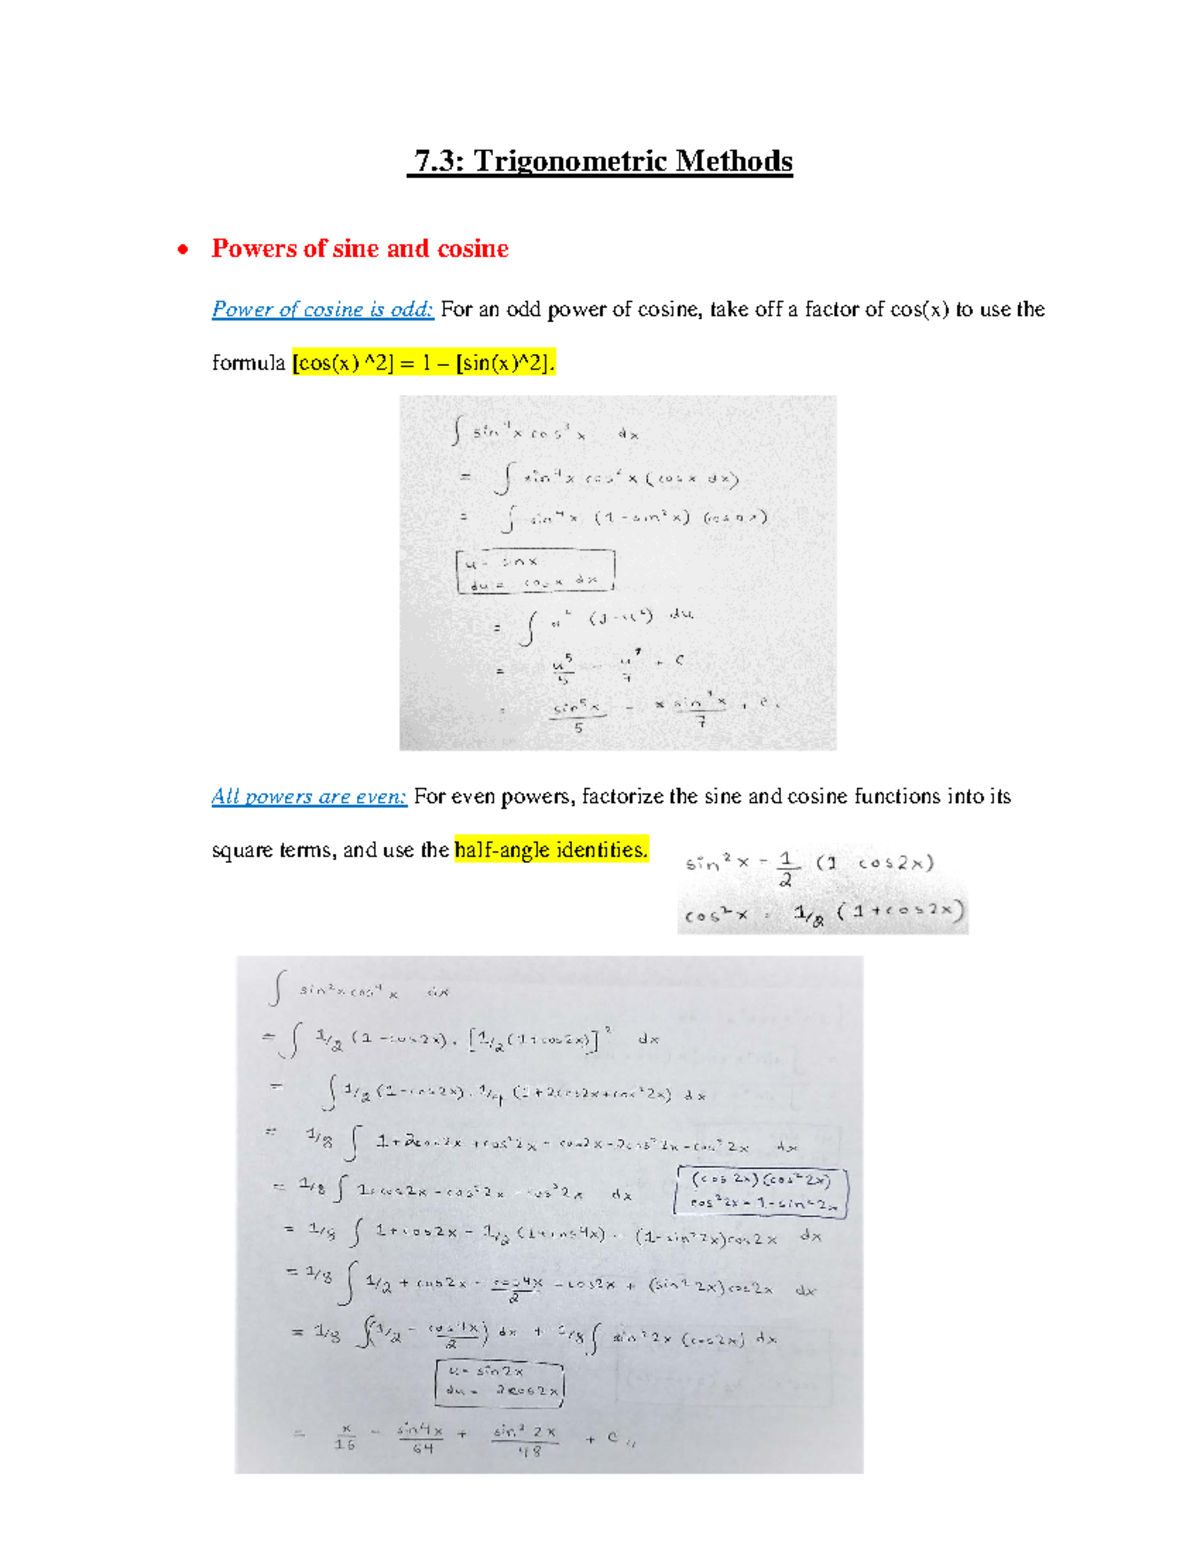 7.3: Trigonometric Methods
• Powers of sine and cosine
Power of cosine is odd: For an odd power of cosine, take off a factor of cos(x) to use the
formula [cos(x) ^2] = 1 – [sin(x)^2].
∫ sin⁴x cos³x dx
= ∫ sin⁴x cos²x (cosx dx)
= ∫ sin⁴x (1-sin²x) (cosxdx)
u = sinx
du = cosx dx
= ∫ (1-u²) du
= u⁵/5 - u⁷/7 + C
= sin⁵x/5 - sin⁷x/7 + C.
All powers are even: For even powers, factorize the sine and cosine functions into its
square terms, and use the half-angle identities.
sin²x = 1/2 (1 cos2x)
cos²x = 1/2 (1+cos2x)
∫ sin²x cos⁴x dx
= ∫ 1/2 (1-cos2x). [1/2(1+cos2x)]² dx
= ∫ 1/2 (1-cos2x). 1/4 (1+2cos2x+cos²2x) dx
= 1/8 ∫ 1+2cos2x +cos²2x - cos2x-2cos²2x-cos³2x dx
= 1/8 ∫ 1+cos2x - cos²2x - cos³2x dx
(cos 2x)(cos²2x)
cos²2x = 1-sin²2x
= 1/8 ∫ 1+cos2x - 1/2 (1+cos4x) - (1-sin²2x)cos2x dx
= 1/8 ∫ 1/2 + cos2x - cos4x/2 - cos2x + (sin²2x)cos2x dx
= 1/8 ∫(1/2 - cos4x/2) dx + 1/8 ∫ sin²2x (cos2x) dx
u = sin2x
du = 2cos2x
= x/16 - sin4x/64 + sin³2x/48 + C //